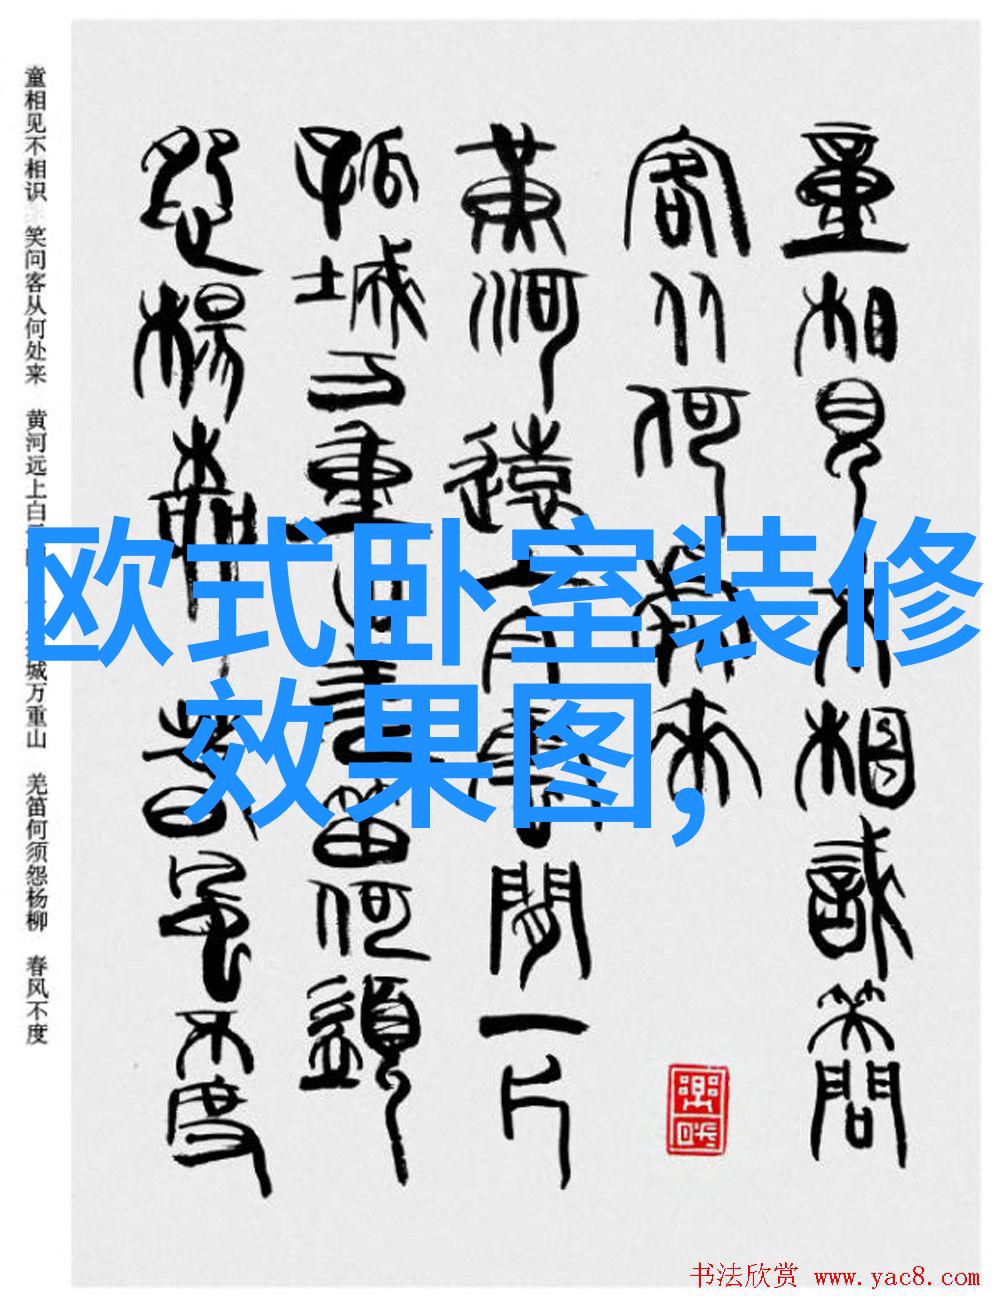 童相見不相識笑問
客从何處來
黃河遠上白雲間一片
孤城万重山羌笛何須
怨楊柳春風不度
童相见不相识 笑问客从何处来 黄河远上白 城万重山 羌笛何须怨杨柳 春风不度
欧式卧室装修
效果图,
书法欣赏 www.yac8.com